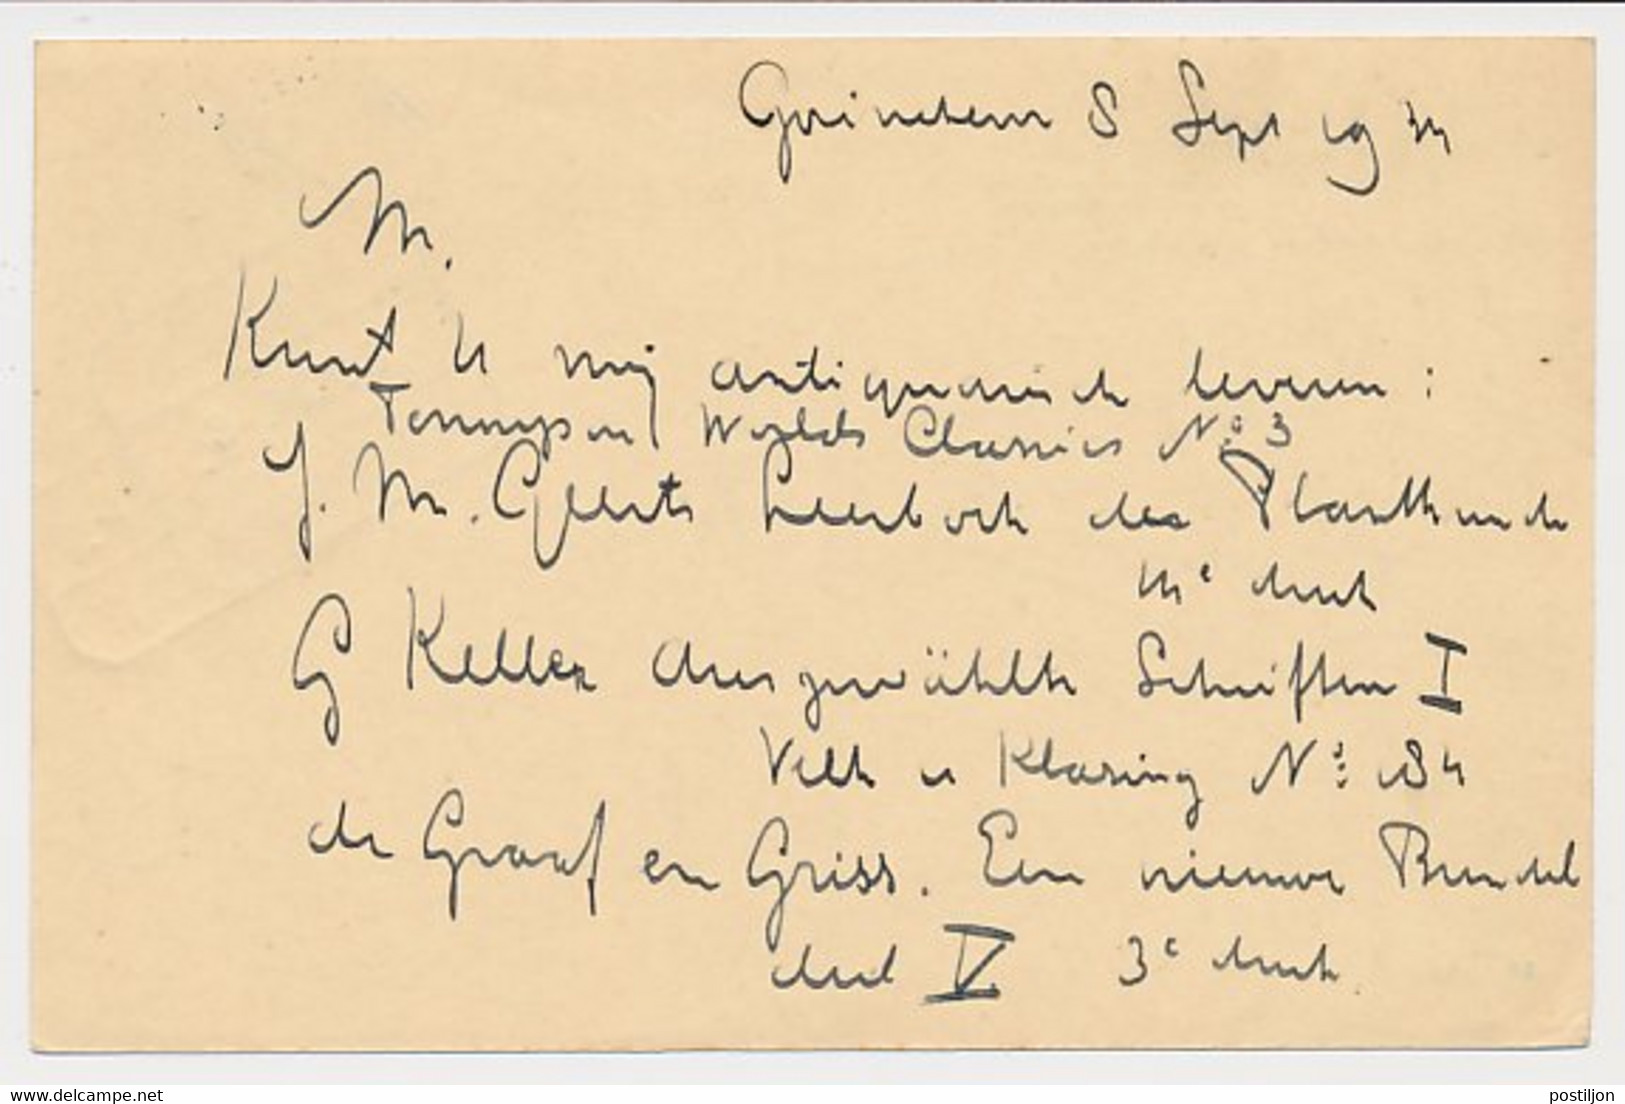 Gorinchem 8 Sept 19
M.
Kunt U mij antiquarisch leveren:
Tennyson World's Classics No. 3
J. M. Geerts Leerboek der Plantkunde
druk
G Keller Ausgewählte Schriften I
Velh u Klasing No: 184
de Graaf en Griss. Een nieuwe Bundel
deel V 3e druk.
www.delcampe.net
postiljon